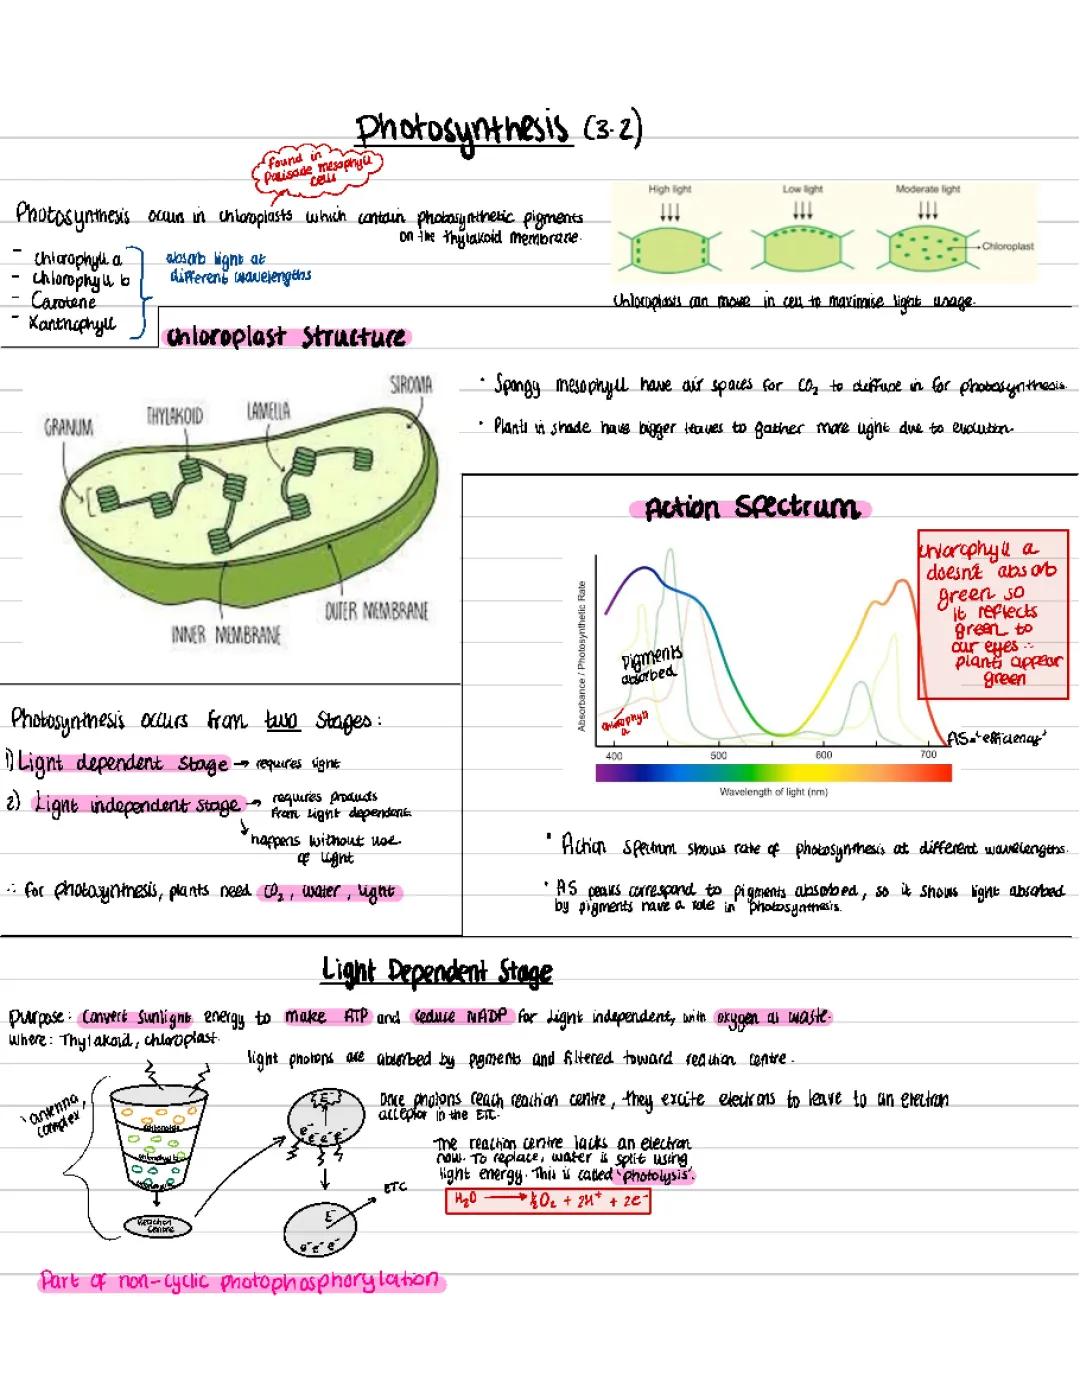 Photosynthesis (3.2)
found in
Palisade mesophyll
cells
Photosynthesis occurs in chloroplasts which contain photosynthetic pigments
on the Thylakoid membrane.
- Chlorophyll a
- Chlorophyll b
- Carotene
- Xanthophyll
absorb light at
different wavelengths
High light
Low light
Moderate light
Chloroplast
Chloroplasts can move in cell to maximise light usage.
Chloroplast Structure
GRANUM
THYLAKOID
LAMELLA
STROMA
OUTER MEMBRANE
INNER MEMBRANE
• Spongy mesophyll have air spaces for CO₂ to diffuse in for photosynthesis.
• Plants in shade have bigger leaves to gather more light due to evolution.
Action Spectrum
Chlorophyll a
doesn't absorb
green so
it reflects
green to
our eyes ∴
plants appear
green
Absorbance / Photosynthetic Rate
Pigments
absorbed
Chlorophyll
a
AS = 'efficiency'
400 500 600 700
Wavelength of light (nm)
• Action Spectrum shows rate of photosynthesis at different wavelengths.
• AS peaks correspond to pigments absorbed, so it shows light absorbed
by pigments have a role in photosynthesis.
Photosynthesis occurs from two stages:
1) Light dependent stage → requires light
2) Light independent stage → requires products
from light dependent
happens without use
of light
∴ for photosynthesis, plants need CO₂, water, light
Light Dependent Stage
Purpose: Convert sunlight energy to make ATP and reduce NADP for Light independent, with oxygen as waste.
Where: Thylakoid, chloroplast.
light photons are absorbed by pigments and filtered toward reaction centre.
'antenna
complex'
Reaction
Centre
Once photons reach reaction centre, they excite electrons to leave to an electron
acceptor in the ETC.
The reaction centre lacks an electron
now. To replace, water is split using
light energy. This is called 'photolysis'.
H₂O → ½O₂ + 2H⁺ + 2e⁻
E⁻
e⁻ e⁻ e⁻
ETC
E⁻
e⁻ e⁻ e⁻
Part of non-cyclic photophosphorylation